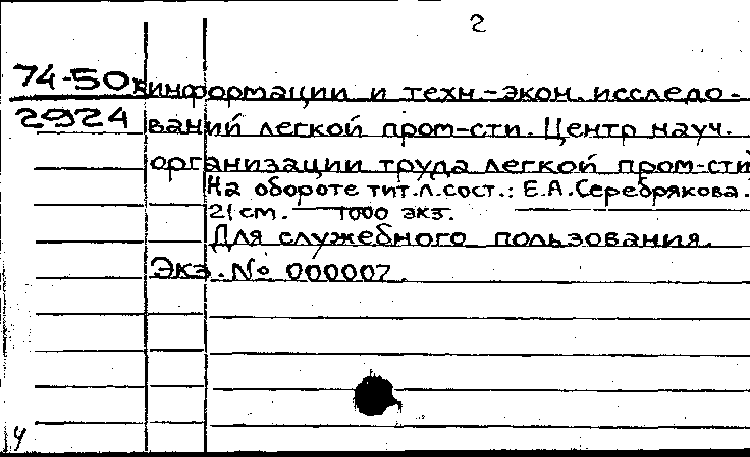 2
74-50
2924
информации и техн.-экон. исследо-
ваний легкой пром-сти. Центр науч.
организации труда легкой пром-сти
На обороте тит.л.сост.: Е.А.Серебрякова.
21 см. 1000 экз.
Для служебного пользования.
Экз. № 000007.
4